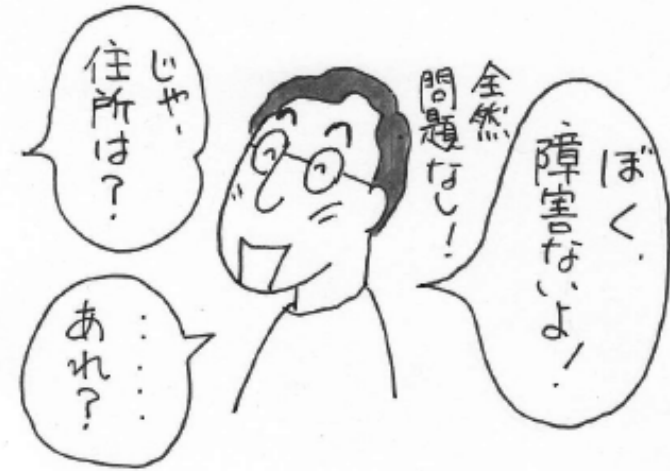 ぼく、
障害ないよ!
全然
問題なし!
じゃ、
住所は?
・・・・・
あれ?